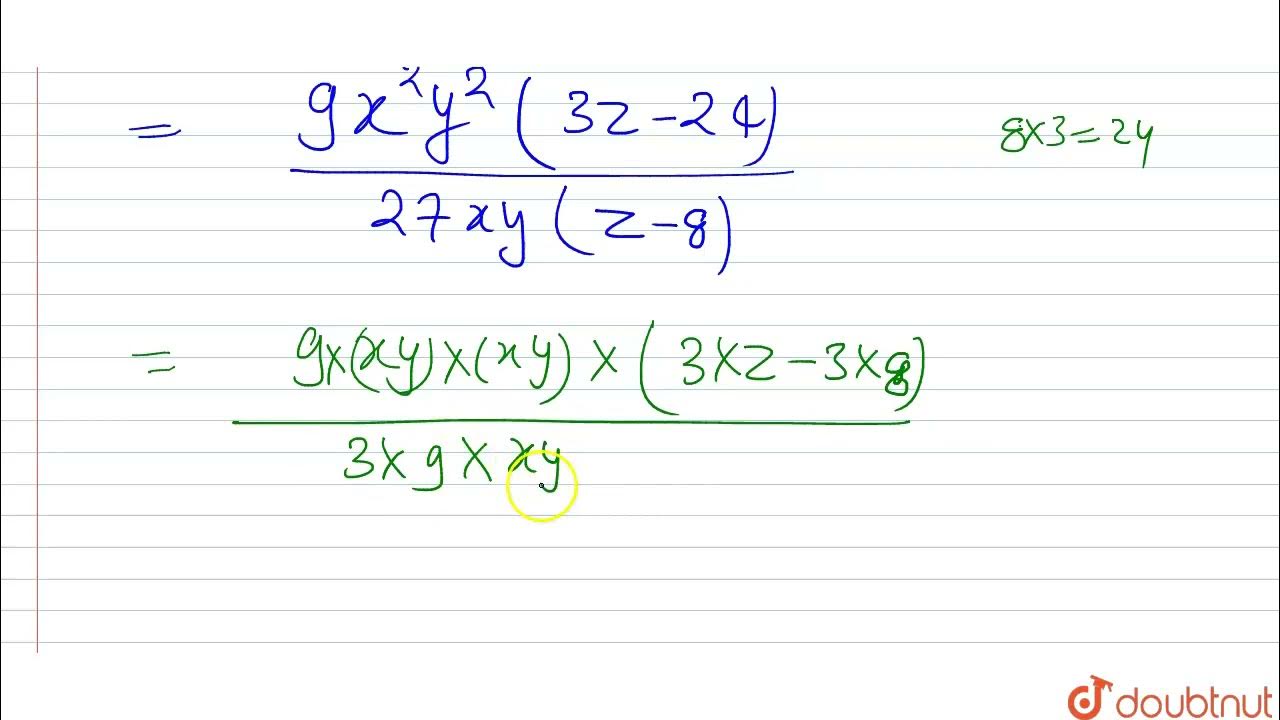 = 9x²y² (3z-24)
27xy (z-8)
8×3=24
= 9×(xy)×(xy) × (3×z-3×8)
3×9×xy
doubtnut